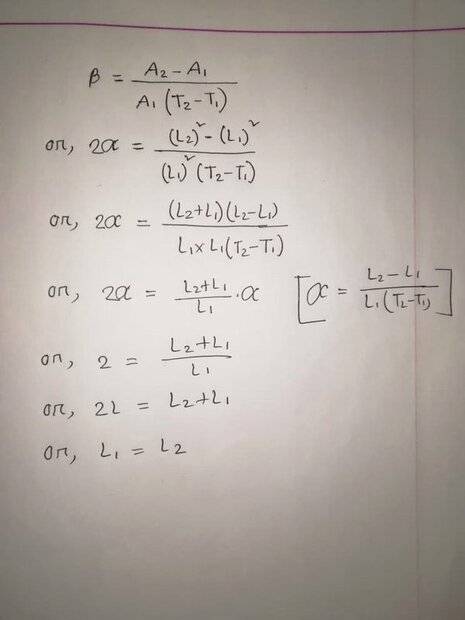 β = (A₂ − A₁) / (A₁ (T₂ − T₁))
or, 2α = ((L₂)² − (L₁)²) / ((L₁)² (T₂ − T₁))
or, 2α = ((L₂+L₁)(L₂−L₁)) / (L₁ × L₁(T₂−T₁))
or, 2α = (L₂+L₁) / L₁ · α [α = (L₂ − L₁) / (L₁(T₂−T₁))]
or, 2 = (L₂ + L₁) / L₁
or, 2L = L₂+L₁
or, L₁ = L₂